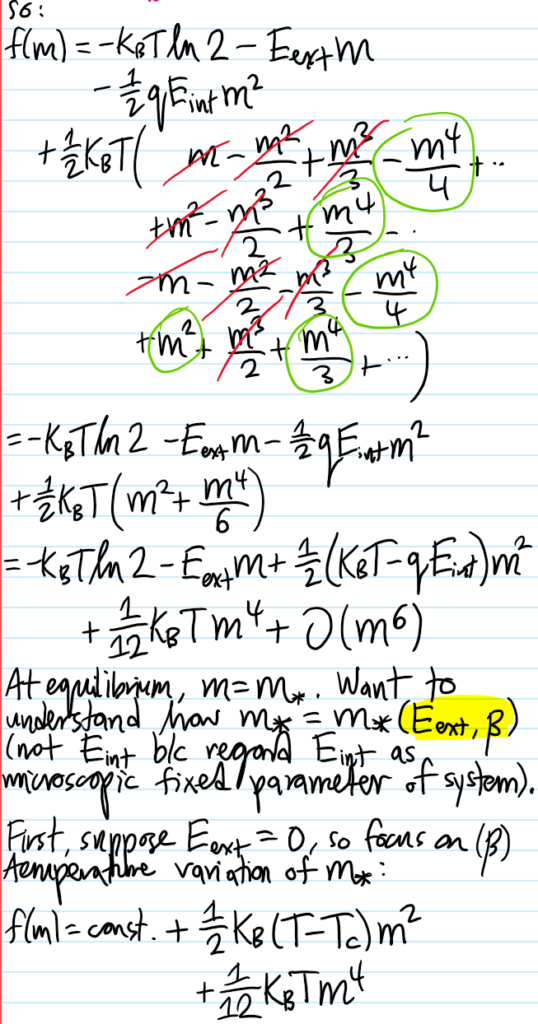 So:
f(m) = -K_BT ln 2 - E_ext m
- 1/2 qE_int m²
+ 1/2 K_BT ( m - m²/2 + m³/3 - m⁴/4 + ..
+m² - m³/2 + m⁴/3 - ..
-m - m²/2 - m³/3 - m⁴/4
+m² + m³/2 + m⁴/3 + ... )
= -K_BT ln 2 - E_ext m - 1/2 qE_int m²
+ 1/2 K_BT (m² + m⁴/6)
= -K_BT ln 2 - E_ext m + 1/2 (K_BT - qE_int) m²
+ 1/12 K_BT m⁴ + O(m⁶)
At equilibrium, m = m_*. Want to
understand how m_* = m_* (E_ext, β)
(not E_int b/c regard E_int as
microscopic fixed parameter of system).
First, suppose E_ext = 0, so focus on (β)
temperature variation of m_*:
f(m) = const. + 1/2 K_B (T - T_c) m²
+ 1/12 K_BT m⁴